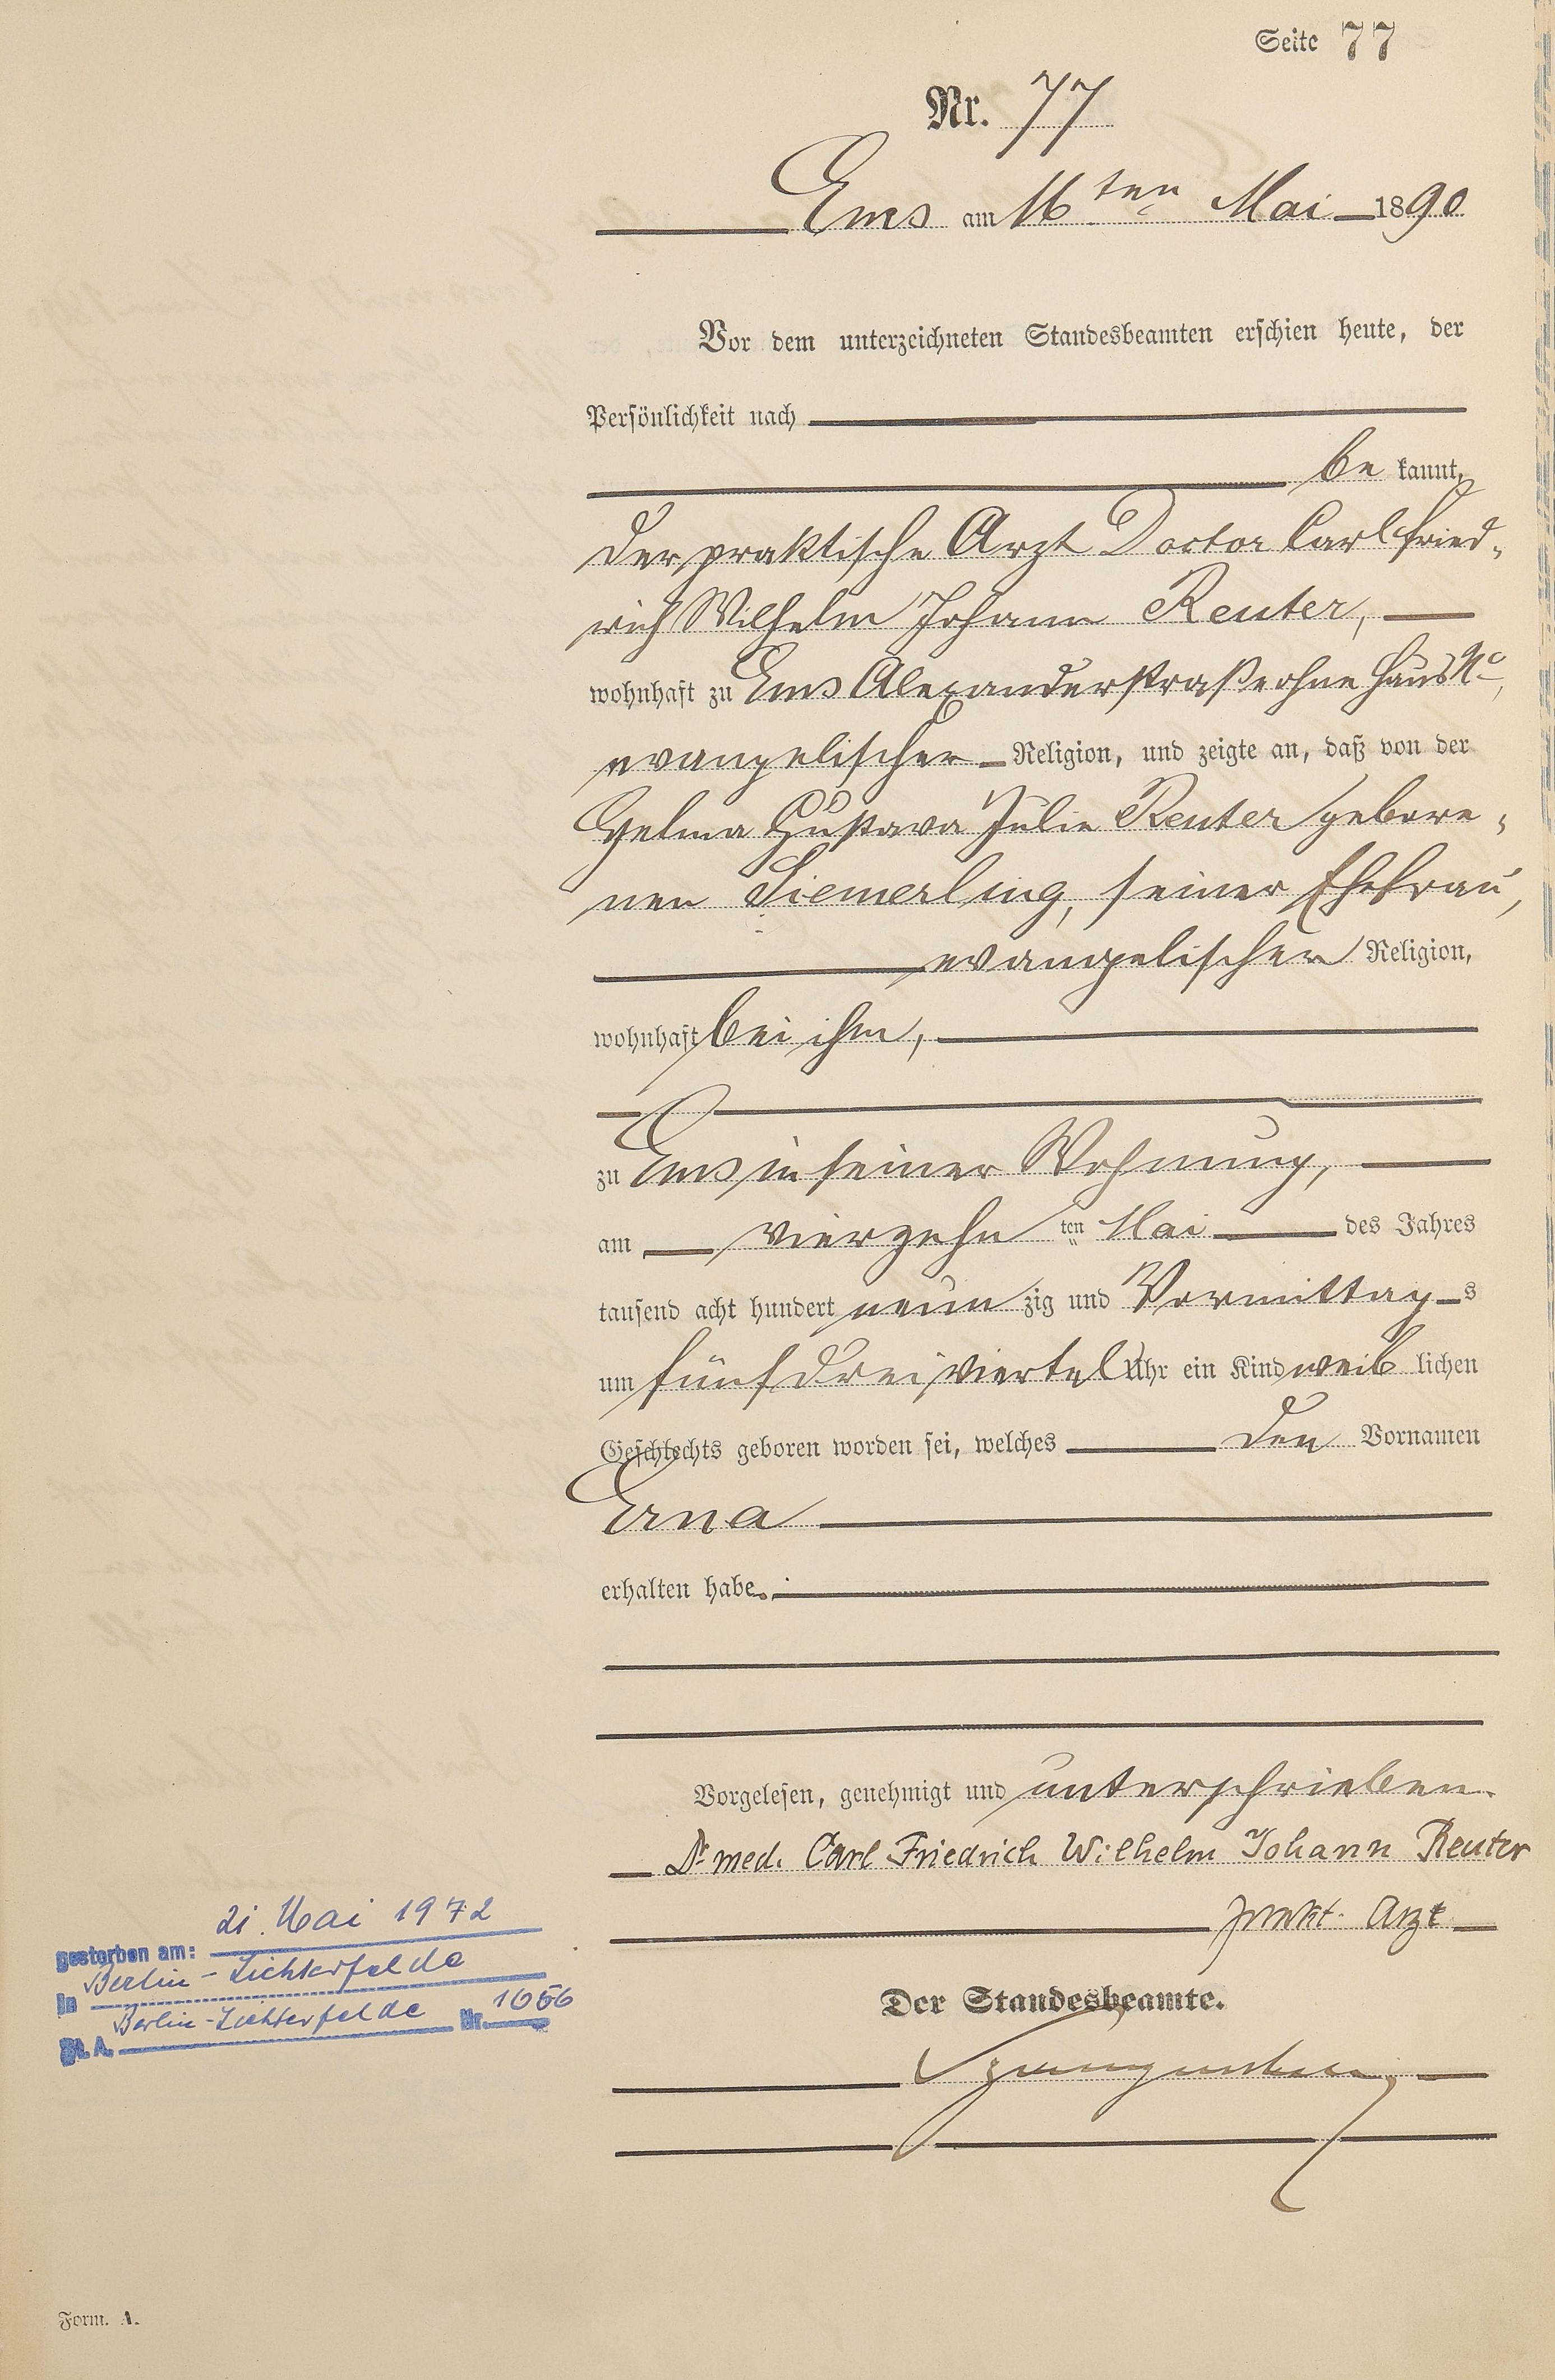 Seite 77
Nr. 77
Ems am 16ten Mai 1890
Vor dem unterzeichneten Standesbeamten erschien heute, der
Persönlichkeit nach
be kannt,
der praktische Arzt Doctor Carl Fried-
rich Wilhelm Johann Reuter,
wohnhaft zu Ems Alexanderstraße ohne Haus No,
evangelischer Religion, und zeigte an, daß von der
Gustava Julie Reuter gebore-
nen Siemerling, seiner Ehefrau,
evangelischer Religion,
wohnhaft bei ihm,
zu Ems in seiner Wohnung,
am vierzehn ten Mai des Jahres
tausend acht hundert neun zig und Vormittag s
um fünf dreiviertel Uhr ein Kind weib lichen
Geschlechts geboren worden sei, welches den Vornamen
Erna
erhalten habe.
Vorgelesen, genehmigt und unterschrieben.
Dr med. Carl Friedrich Wilhelm Johann Reuter
prakt. Arzt
Der Standesbeamte.
gestorben am: 21. Mai 1972
in Berlin-Lichterfelde
St. A. Berlin-Lichterfelde Nr. 1056
Form. A.